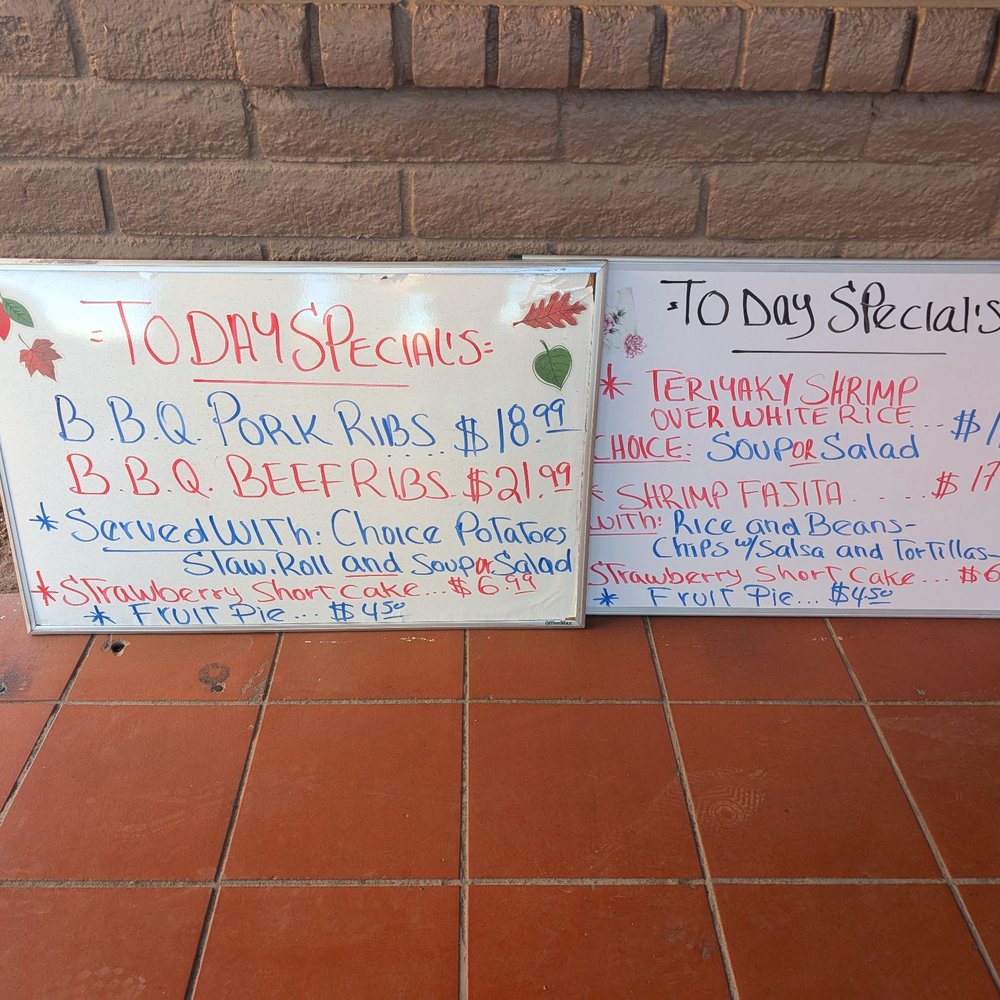 =TODAY SPECIAL'S=
B.B.Q. PORK RIBS $18.99
B.B.Q. BEEF RIBS. $21.99
* Served WITH: Choice Potatoes
Slaw. Roll and Soup or Salad
* Strawberry Short Cake... $6.99
* Fruit Pie... $4.50
OfficeMax
=TODAY Special's
* TERIYAKY SHRIMP
OVER WHITE RICE... $1
CHOICE: SOUP OR Salad
* SHRIMP FAJITA..... $17
WITH: Rice and Beans-
Chips w/Salsa and Tortillas-
Strawberry Short Cake... $6
* Fruit Pie... $4.50